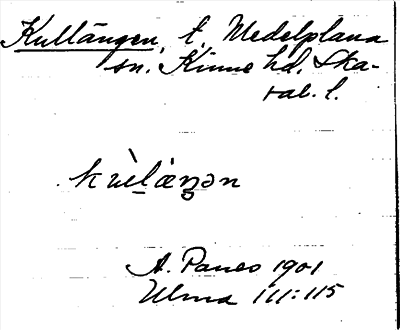 Kullängen, t, Medelplana
sn. Kinne hd. Ska-
rab. l.
A. Paues 1901
Ulma 111:115